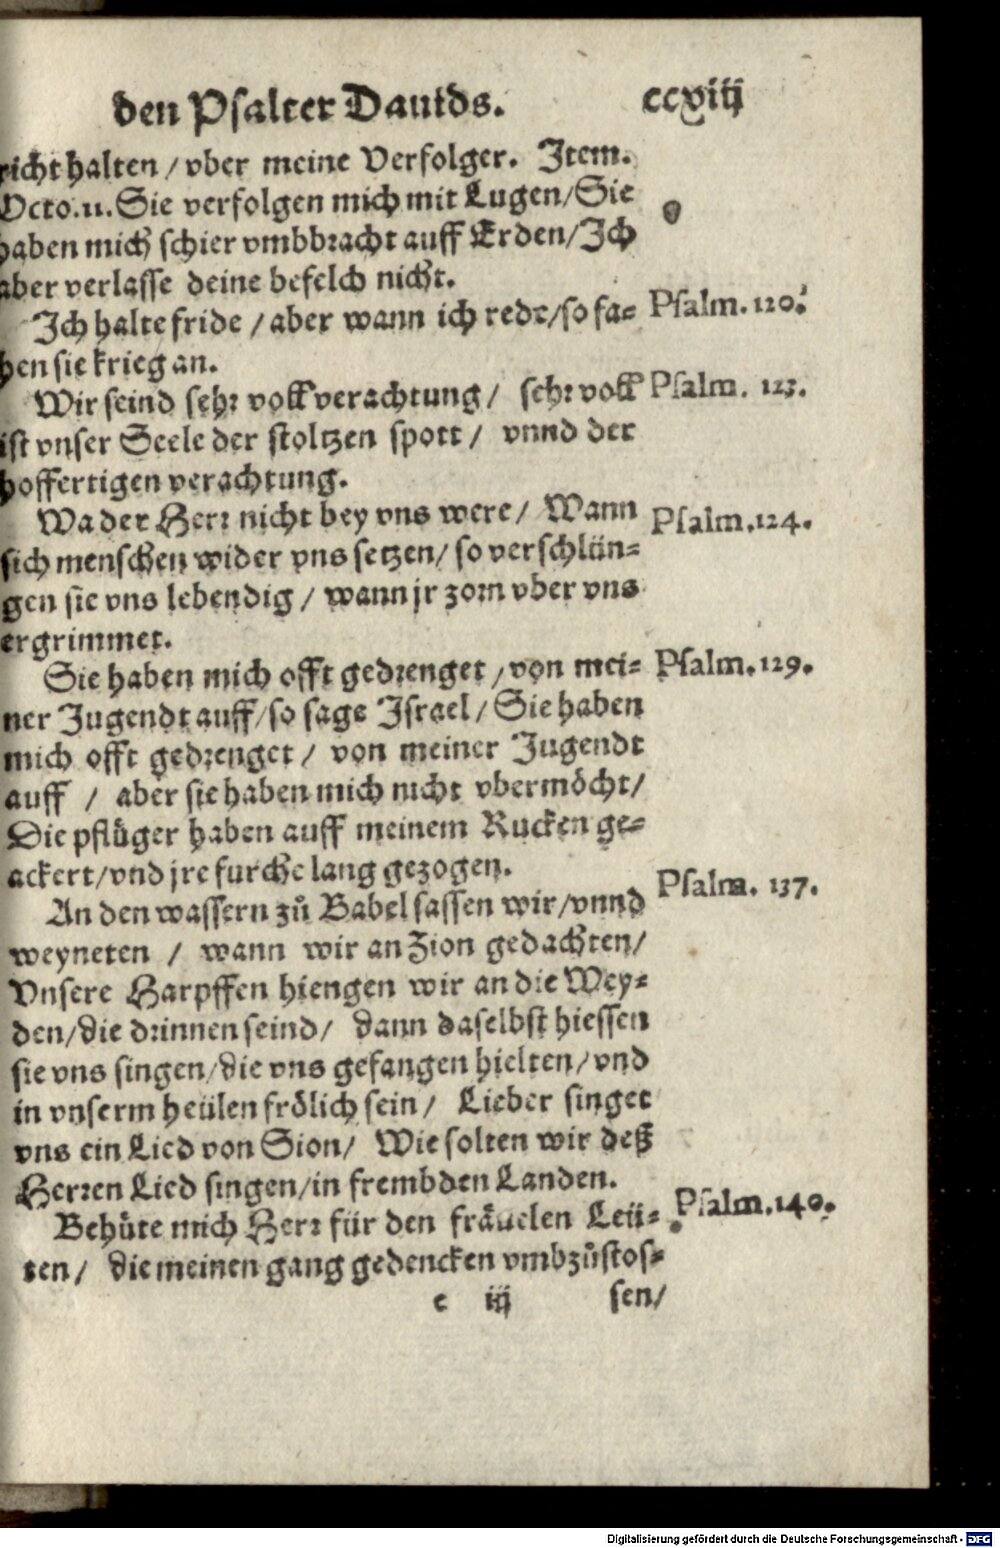 den Psalter Dauids. ccxiij
richt halten / vber meine Verfolger. Item.
Octo.11. Sie verfolgen mich mit Lugen/Sie
haben mich schier vmbbracht auff Erden/Ich
aber verlasse deine befelch nicht.
Ich halte fride / aber wann ich rede/so fa= Psalm.120.
hen sie krieg an.
Wir seind sehr voll verachtung/ sehr voll Psalm. 123.
ist vnser Seele der stoltzen spott / vnnd der
hoffertigen verachtung.
Wa der Herr nicht bey vns were/ Wann Psalm.124.
sich menschen wider vns setzen/ so verschlün=
gen sie vns lebendig / wann jr zorn vber vns
ergrimmet.
Sie haben mich offt gedrenget /von mei= Psalm.129.
ner Jugendt auff/so sage Israel/ Sie haben
mich offt gedrenget / von meiner Jugendt
auff / aber sie haben mich nicht vbermöcht/
Die pflüger haben auff meinem Rucken ge=
ackert/vnd jre furche lang gezogen.
An den wassern zů Babel sassen wir/vnnd Psalm. 137.
weyneten / wann wir an Zion gedachten/
Vnsere Harpffen hiengen wir an die Wey=
den/die drinnen seind/ dann daselbst hiessen
sie vns singen/die vns gefangen hielten/vnd
in vnserm heülen frölich sein/ Lieber singet
vns ein Lied von Sion/ Wie solten wir deß
Herren Lied singen/in frembden Landen.
Behüte mich Herr für den fräuelen Leü= Psalm.140.
ten/ die meinen gang gedencken vmbzůstos=
e iij sen/
Digitalisierung gefördert durch die Deutsche Forschungsgemeinschaft - DFG